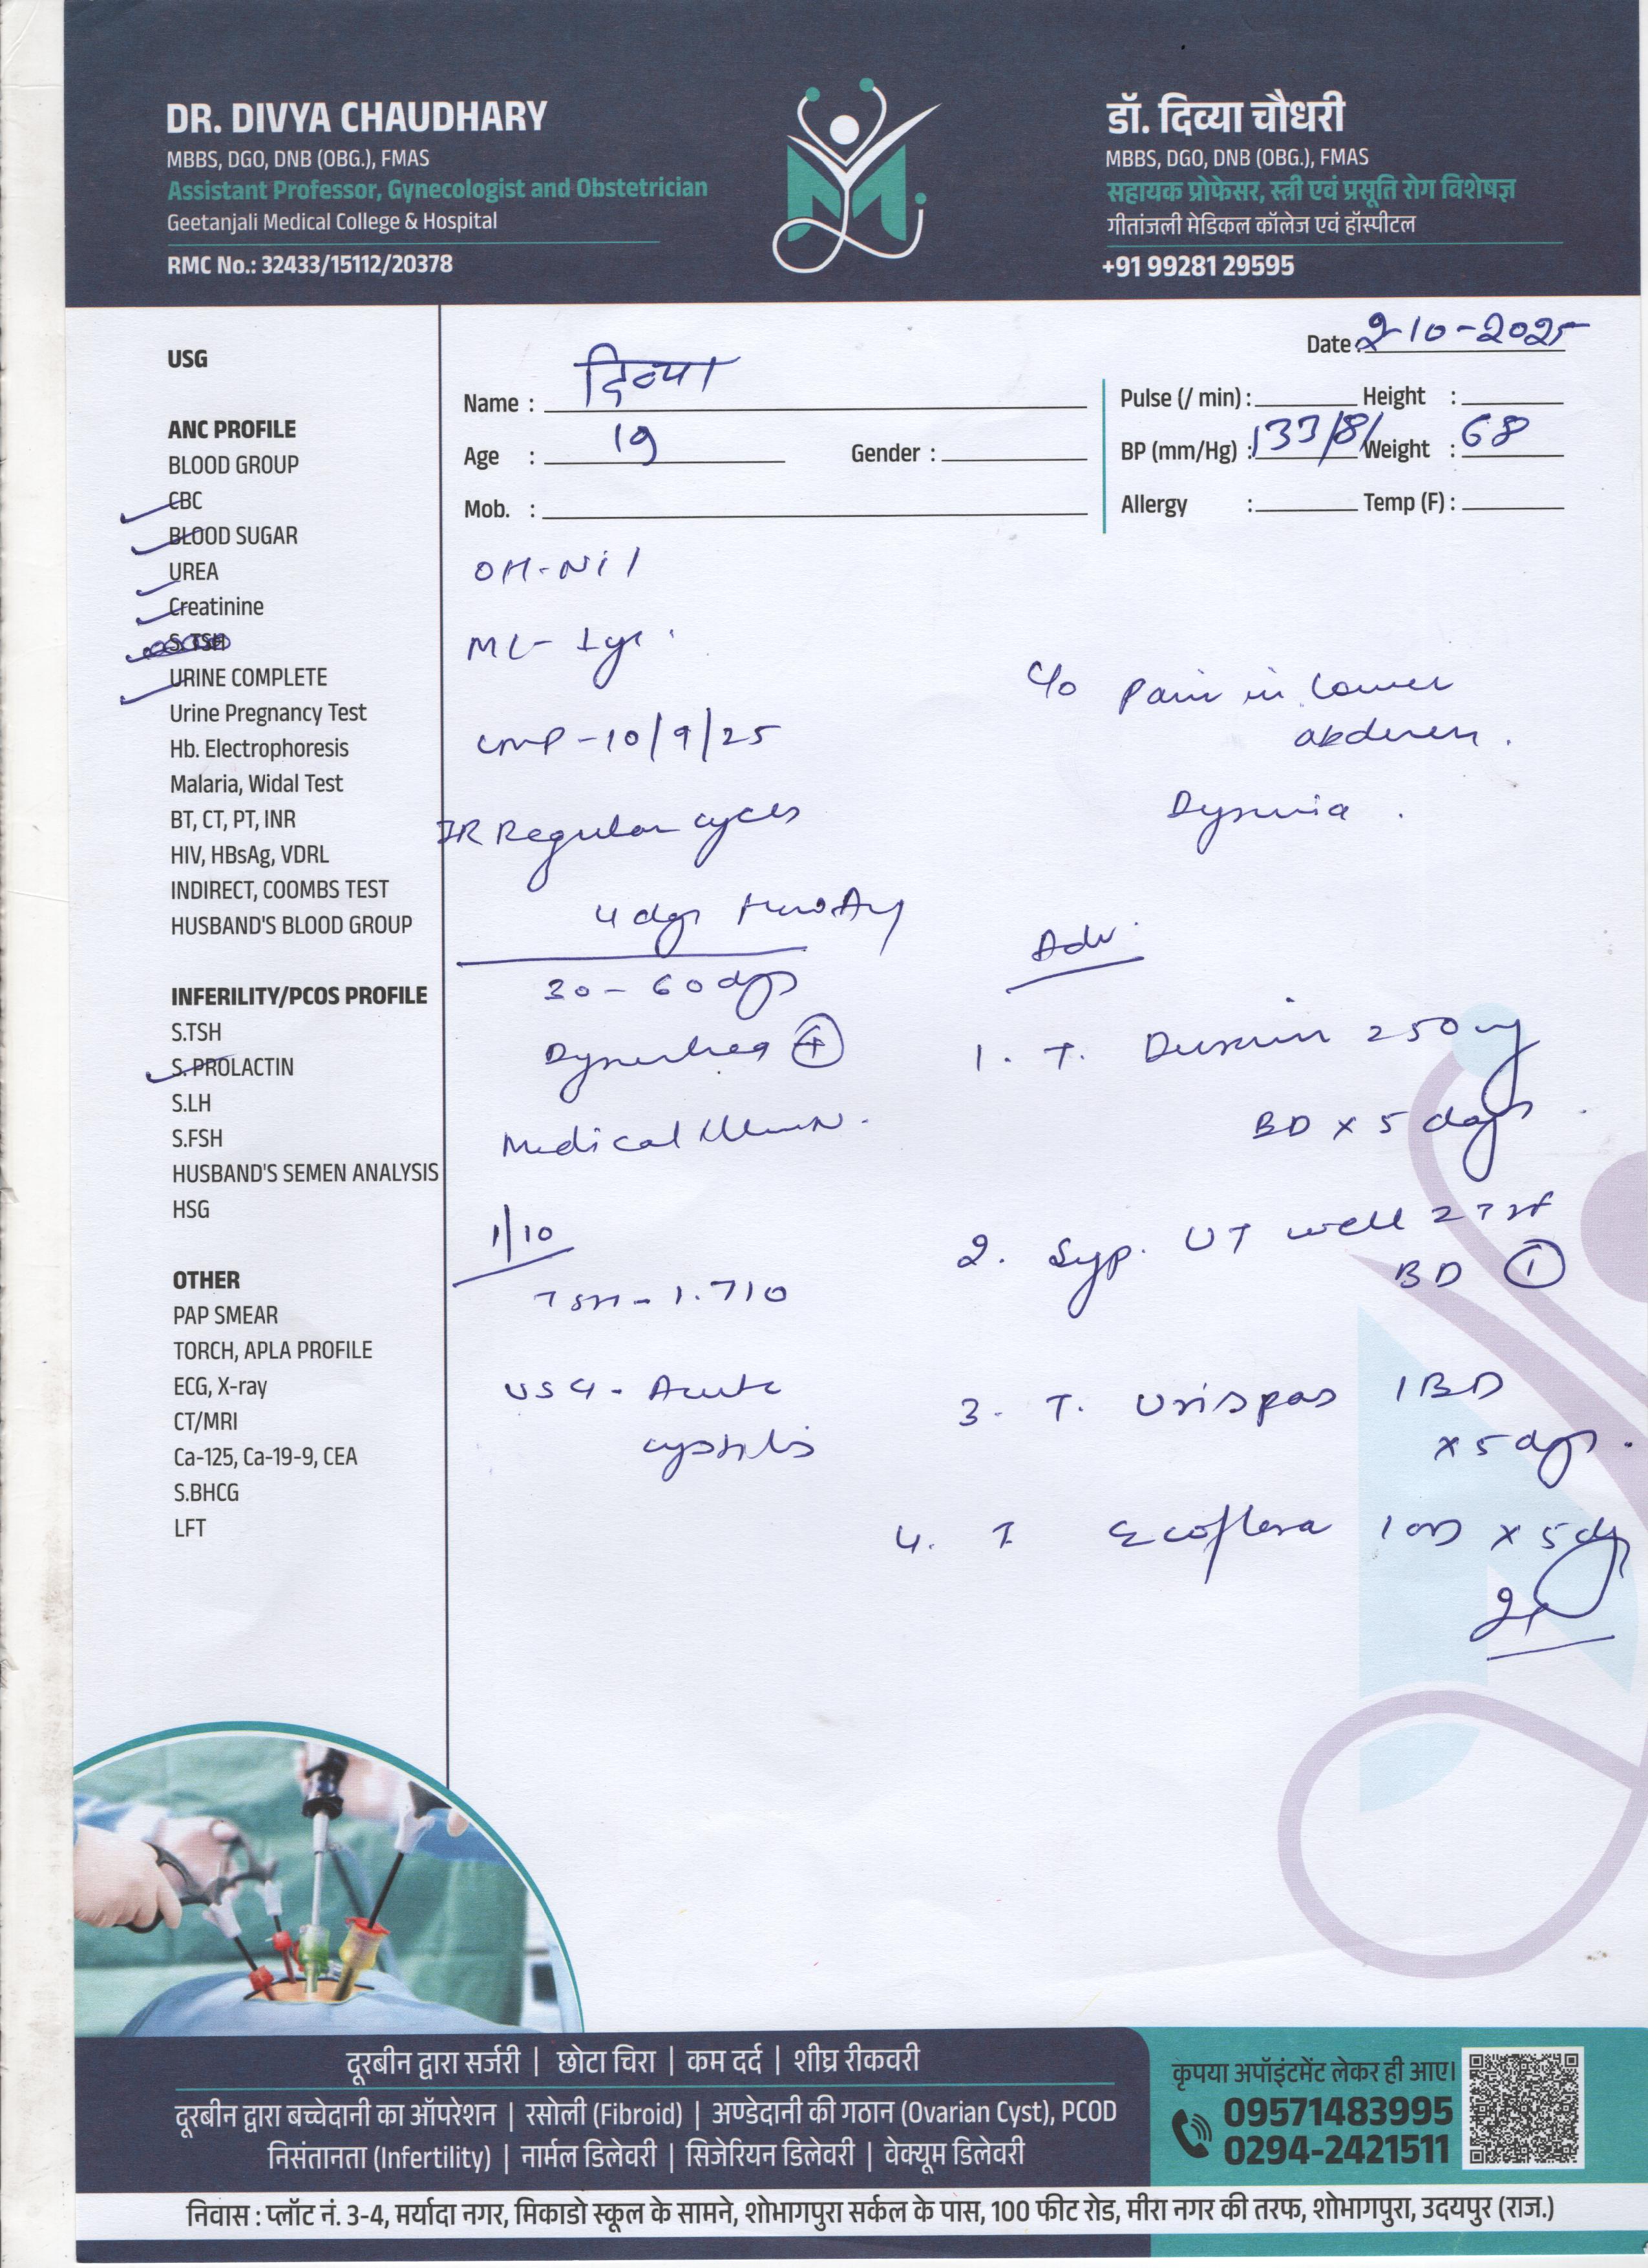 DR. DIVYA CHAUDHARY
MBBS, DGO, DNB (OBG.), FMAS
Assistant Professor, Gynecologist and Obstetrician
Geetanjali Medical College & Hospital
RMC No.: 32433/15112/20378
डॉ. दिव्या चौधरी
MBBS, DGO, DNB (OBG.), FMAS
सहायक प्रोफेसर, स्त्री एवं प्रसूति रोग विशेषज्ञ
गीतांजली मेडिकल कॉलेज एवं हॉस्पीटल
+91 99281 29595
Date : 2-10-2025
Name : दिव्या
Age : 19 Gender :
Mob. :
Pulse (/ min) : Height :
BP (mm/Hg) : 133/81 Weight : 68
Allergy : Temp (F) :
USG
ANC PROFILE
BLOOD GROUP
CBC
BLOOD SUGAR
UREA
Creatinine
S. TSH
URINE COMPLETE
Urine Pregnancy Test
Hb. Electrophoresis
Malaria, Widal Test
BT, CT, PT, INR
HIV, HBsAg, VDRL
INDIRECT, COOMBS TEST
HUSBAND'S BLOOD GROUP
INFERILITY/PCOS PROFILE
S.TSH
S. PROLACTIN
S.LH
S.FSH
HUSBAND'S SEMEN ANALYSIS
HSG
OTHER
PAP SMEAR
TORCH, APLA PROFILE
ECG, X-ray
CT/MRI
Ca-125, Ca-19-9, CEA
S.BHCG
LFT
OH - Nil
ML - 1yr.
LMP - 10/9/25
IR Regular cycles
4 days
30 - 60 days
+
Medical
1/10
TSH - 1.710
USG - Acute
cystitis
C/o Pain in lower
abdomen.
Dysuria.
Adv.
1. T. 250mg
BD x 5 days
2. Syp. UT well 2 TSF
BD 1
3. T. Urispas 1 BD
x 5 days.
4. T Ecoflora 1 OD x 5 days
दूरबीन द्वारा सर्जरी | छोटा चिरा | कम दर्द | शीघ्र रीकवरी
दूरबीन द्वारा बच्चेदानी का ऑपरेशन | रसोली (Fibroid) | अण्डेदानी की गठान (Ovarian Cyst), PCOD
निसंतानता (Infertility) | नार्मल डिलेवरी | सिजेरियन डिलेवरी | वेक्यूम डिलेवरी
कृपया अपॉइंटमेंट लेकर ही आए।
09571483995
0294-2421511
निवास : प्लॉट नं. 3-4, मर्यादा नगर, मिकाडो स्कूल के सामने, शोभागपुरा सर्कल के पास, 100 फीट रोड, मीरा नगर की तरफ, शोभागपुरा, उदयपुर (राज.)